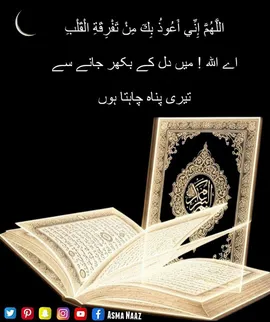 اللَّهُمَّ إِنِّي أَعُوذُ بِكَ مِنْ تَفْرِقَةِ الْقَلْبِ
اے اللہ ! میں دل کے بکھر جانے سے
تیری پناہ چاہتا ہوں
ASMA NAAZ